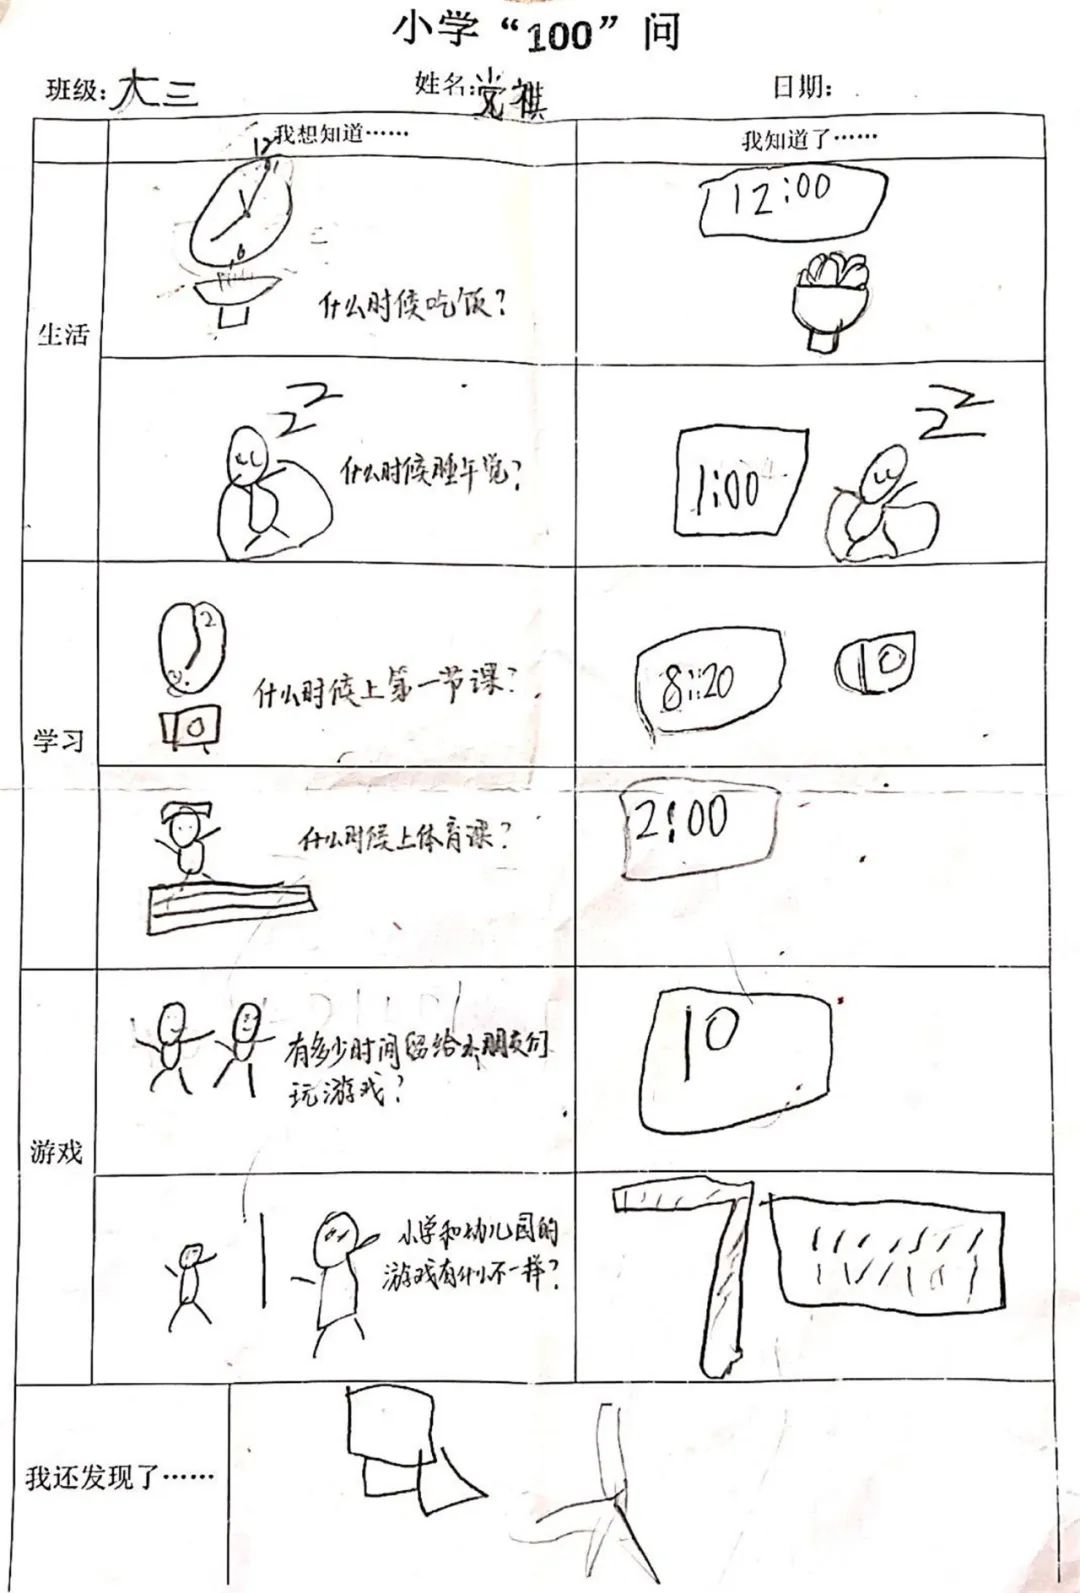 小学“100”问
班级：大三 姓名：党祺 日期：
我想知道…… 我知道了……
生活
12
6
什么时候吃饭？
12:00
ZZ
什么时候睡午觉？
1:00
ZZ
学习
2
什么时候上第一节课？
8:20
什么时候上体育课？
2:00
游戏
有多少时间留给小朋友们
玩游戏？
10
小学和幼儿园的
游戏有什么不一样？
我还发现了……